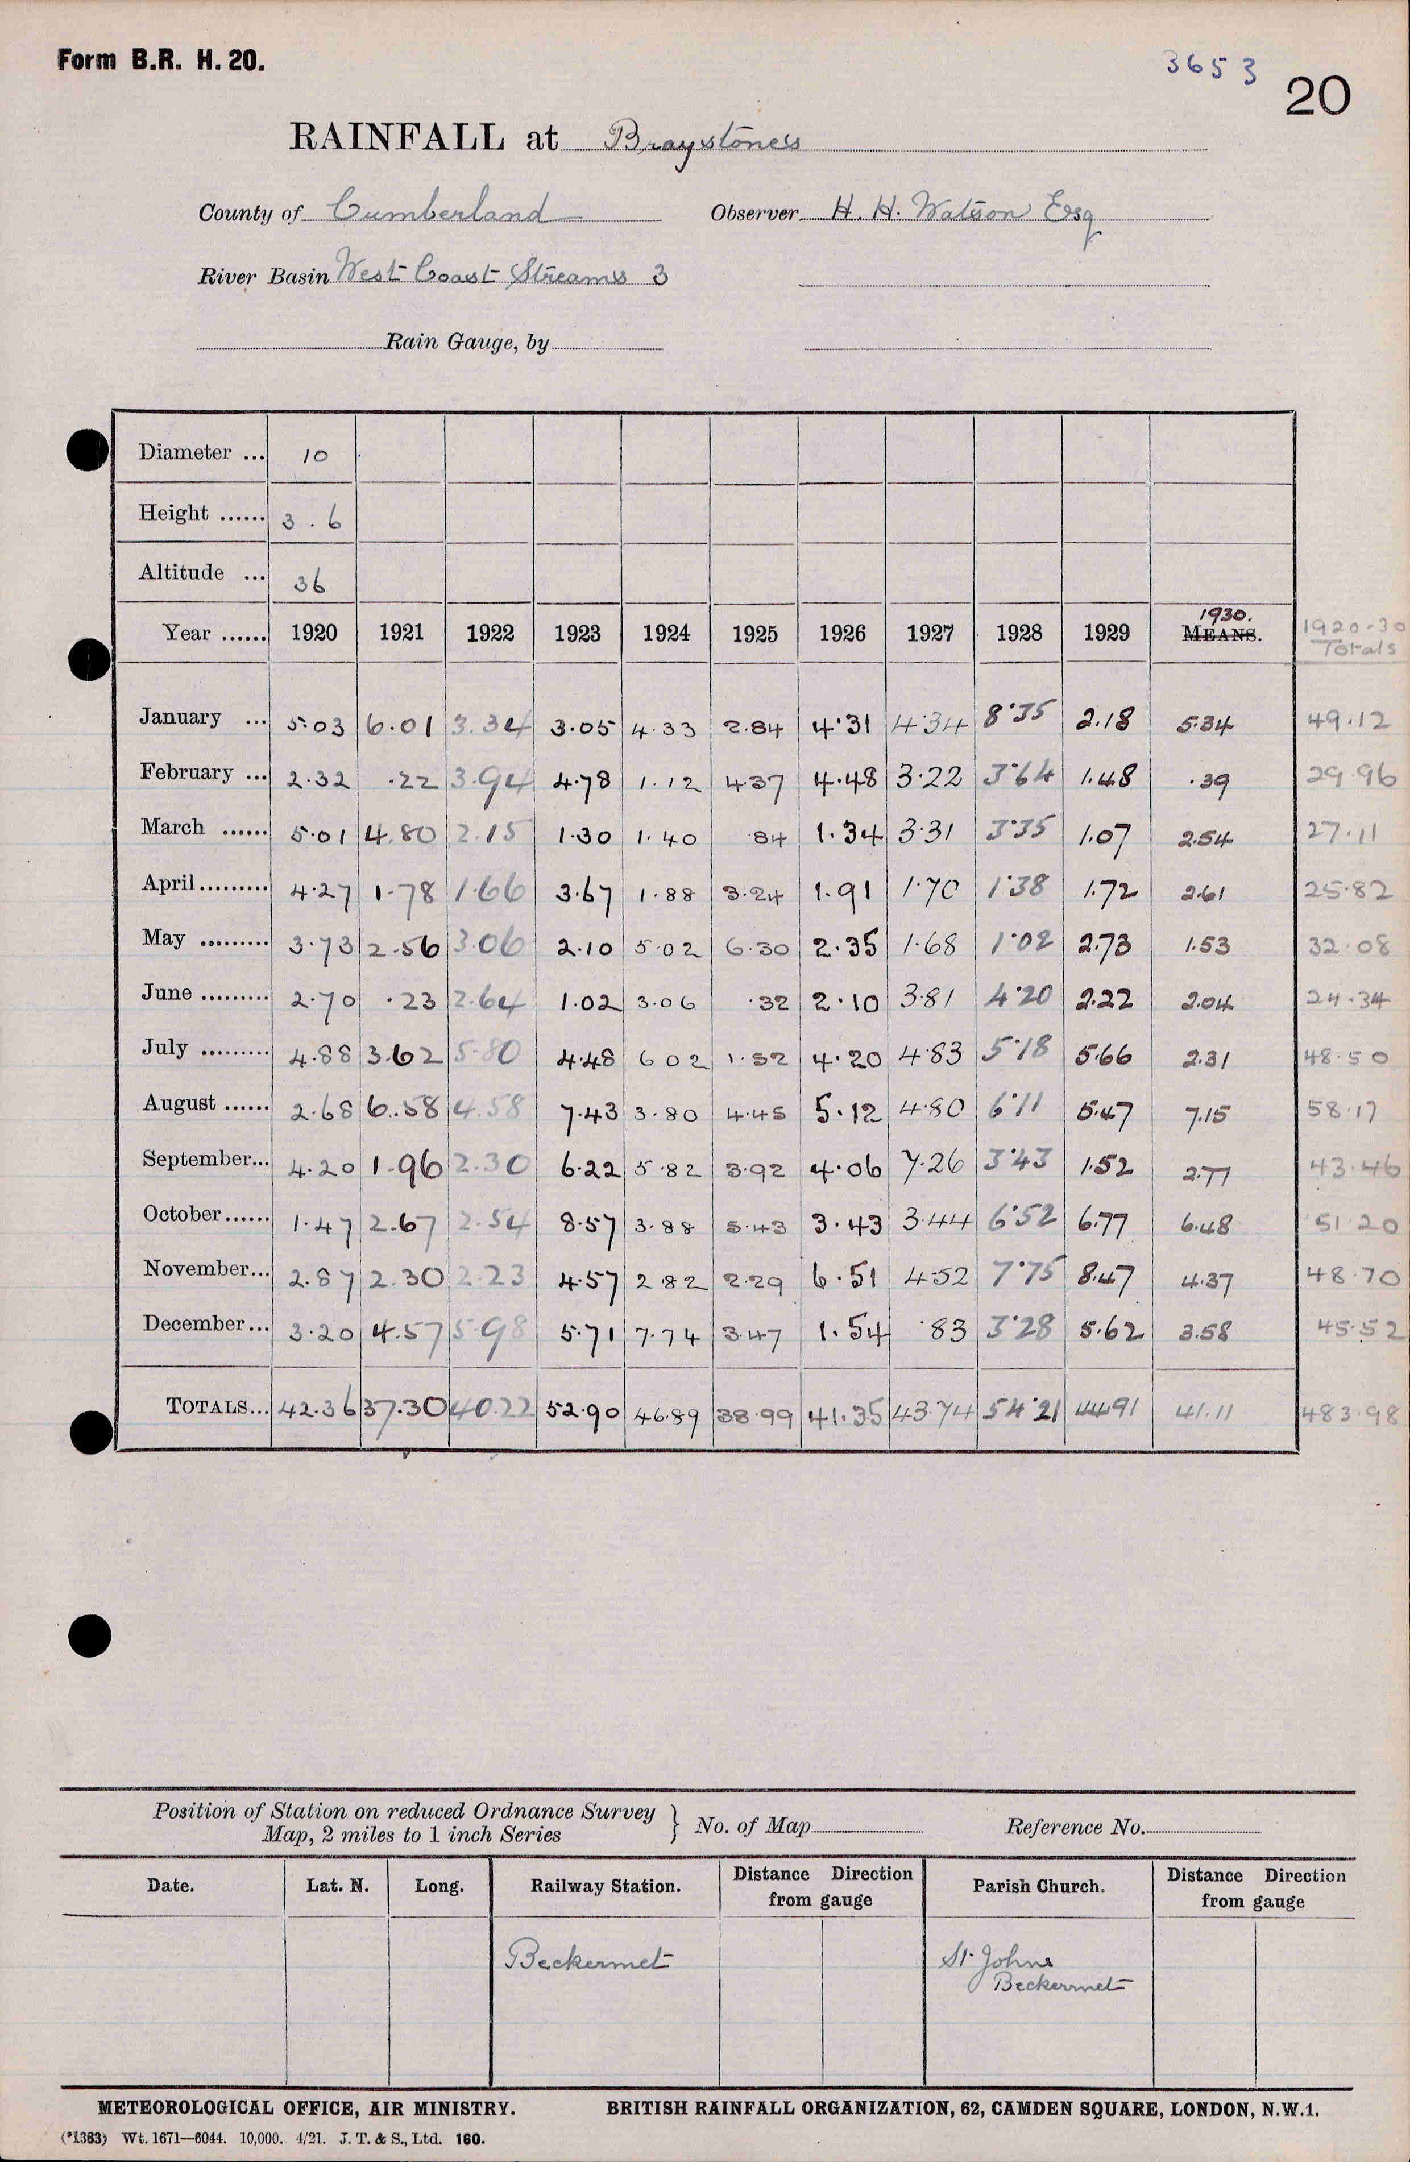 Form B.R. H. 20.
3653
20
RAINFALL at Braystones
County of Cumberland Observer H. H. Watson Esq
River Basin West Coast Streams 3
Rain Gauge, by
Diameter ... 10
Height ...... 3.6
Altitude ... 36
1930.
Year ...... 1920 1921 1922 1923 1924 1925 1926 1927 1928 1929 MEANS. 1920-30 Totals
January ... 5.03 6.01 3.34 3.05 4.33 2.84 4.31 4.34 8.35 2.18 5.34 49.12
February ... 2.32 .22 3.94 4.78 1.12 4.37 4.48 3.22 3.64 1.48 .39 29.96
March ...... 5.01 4.80 2.15 1.30 1.40 .84 1.34 3.31 3.35 1.07 2.54 27.11
April ......... 4.27 1.78 1.66 3.67 1.88 3.24 1.91 1.70 1.38 1.72 2.61 25.82
May ......... 3.73 2.56 3.06 2.10 5.02 6.30 2.35 1.68 1.02 2.73 1.53 32.08
June ......... 2.70 .23 2.64 1.02 3.06 .32 2.10 3.81 4.20 2.22 2.04 24.34
July ......... 4.88 3.62 5.80 4.48 6 02 1.52 4.20 4.83 5.18 5.66 2.31 48.50
August ...... 2.68 6.58 4.58 7.43 3.80 4.45 5.12 4.80 6.11 5.47 7.15 58.17
September... 4.20 1.96 2.30 6.22 5.82 3.92 4.06 7.26 3.43 1.52 2.77 43.46
October...... 1.47 2.67 2.54 8.57 3.88 5.43 3.43 3.44 6.52 6.77 6.48 51.20
November... 2.87 2.30 2.23 4.57 2.82 2.29 6.51 4.52 7.75 8.47 4.37 48.70
December... 3.20 4.57 5.98 5.71 7.74 3.47 1.54 .83 3.28 5.62 3.58 45.52
TOTALS... 42.36 37.30 40.22 52.90 46.89 38.99 41.35 43.74 54.21 44.91 41.11 483.98
Position of Station on reduced Ordnance Survey
Map, 2 miles to 1 inch Series } No. of Map Reference No.
Date. Lat. N. Long. Railway Station. Distance Direction from gauge Parish Church. Distance Direction from gauge
Beckermet St Johns
Beckermet
METEOROLOGICAL OFFICE, AIR MINISTRY. BRITISH RAINFALL ORGANIZATION, 62, CAMDEN SQUARE, LONDON, N.W.1.
(*1383) Wt. 1671—6044. 10,000. 4/21. J. T. & S., Ltd. 160.